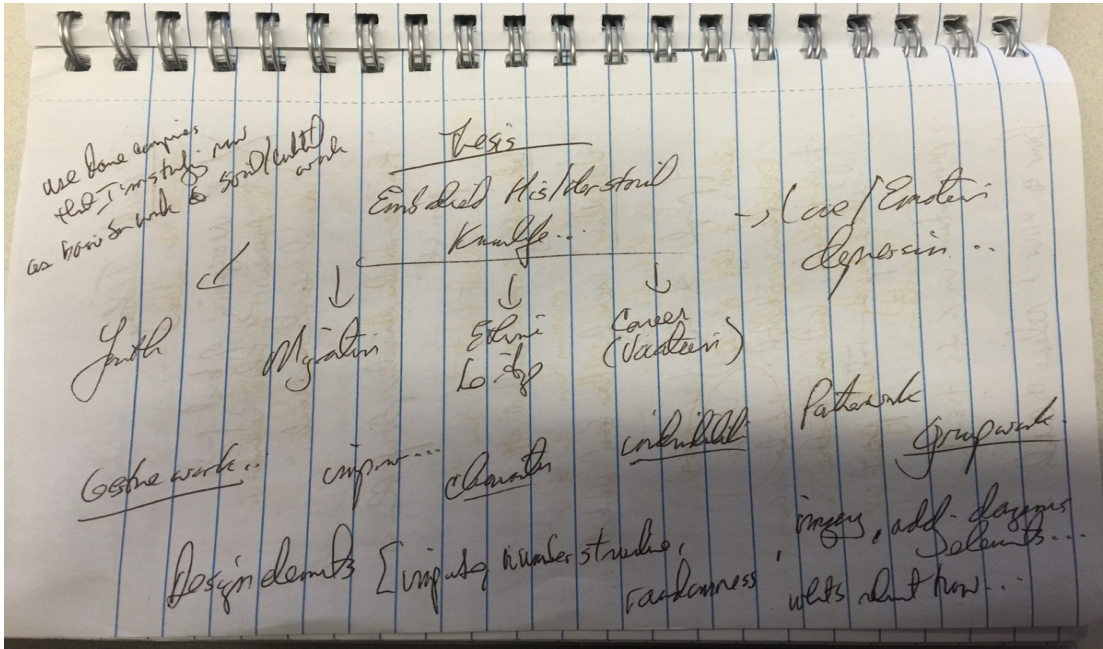 use dance companies
that I'm studying now
as basis for work
work
Thesis
Embodied His/der
→ Love/Emotion
depression...
Youth
Migration
Ethnic
Career
(Vocation)
Gesture work..
improv...
character
individual
Partnerwork
Groupwork.
Design elements [impulse, number structure,
randomness
, imagery, add - dangerous
elements...
what's relevant now...